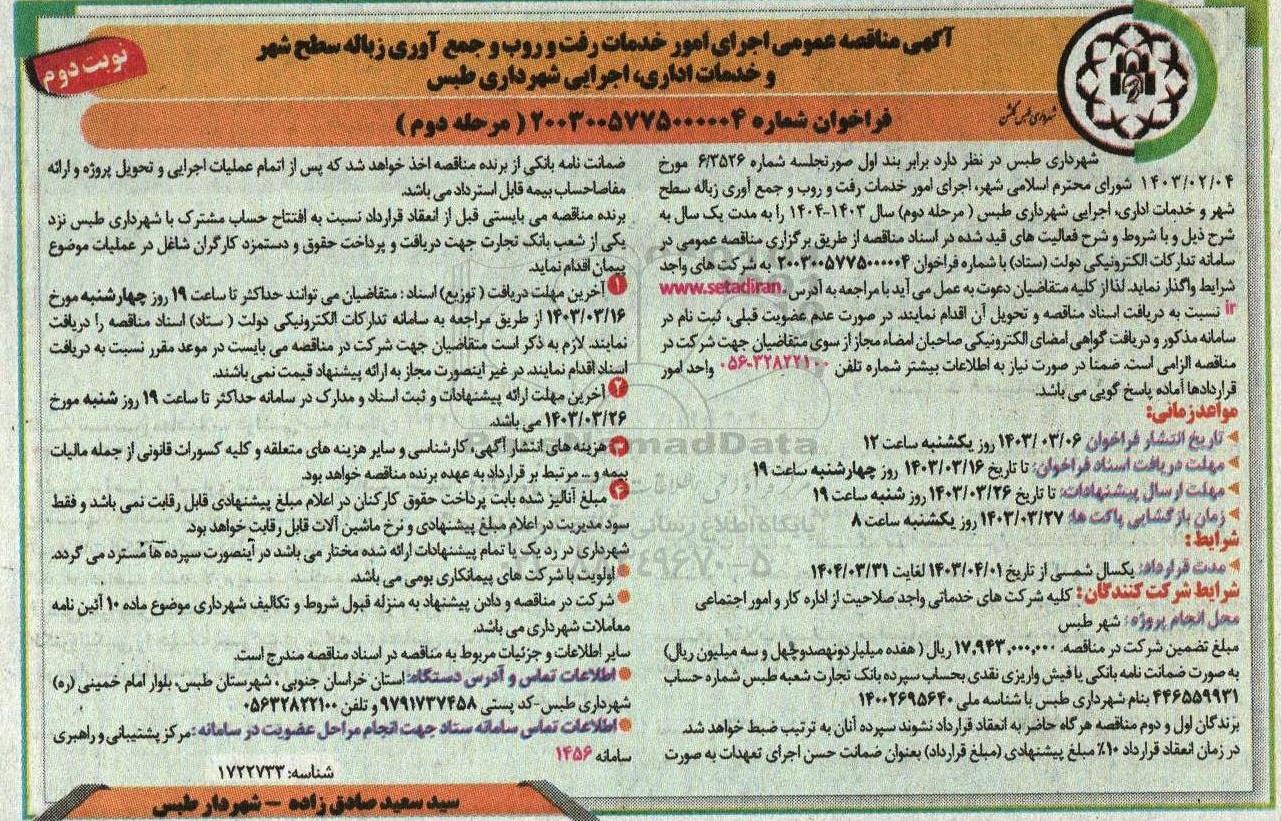 آگهی مناقصه عمومی اجرای امور خدمات رفت و روب و جمع آوری زباله سطح شهر
و خدمات اداری، اجرایی شهرداری طبس
نوبت دوم
فراخوان شماره ۲۰۰۳۰۰۵۷۷۵۰۰۰۰۰۴ ( مرحله دوم )
شهرداری طبس گلشن
شهرداری طبس در نظر دارد برابر بند اول صورتجلسه شماره ۶/۳۵۲۶ مورخ
۱۴۰۳/۰۲/۰۴ شورای محترم اسلامی شهر، اجرای امور خدمات رفت و روب و جمع آوری زباله سطح
شهر و خدمات اداری، اجرایی شهرداری طبس ( مرحله دوم) سال ۱۴۰۳-۱۴۰۴ را به مدت یک سال به
شرح ذیل و با شروط و شرح فعالیت های قید شده در اسناد مناقصه از طریق برگزاری مناقصه عمومی در
سامانه تدارکات الکترونیکی دولت (ستاد) با شماره فراخوان ۲۰۰۳۰۰۵۷۷۵۰۰۰۰۰۴ به شرکت های واجد
شرایط واگذار نماید. لذا از کلیه متقاضیان دعوت به عمل می آید با مراجعه به آدرس www.setadiran.
ir نسبت به دریافت اسناد مناقصه و تحویل آن اقدام نمایند. در صورت عدم عضویت قبلی، ثبت نام در
سامانه مذکور و دریافت گواهی امضای الکترونیکی صاحبان امضاء مجاز از سوی متقاضیان جهت شرکت در
مناقصه الزامی است. ضمنا در صورت نیاز به اطلاعات بیشتر شماره تلفن ۰۵۶-۳۲۸۲۲۱۰۰ واحد امور
قراردادها آماده پاسخ گویی می باشد.
مواعد زمانی:
تاریخ انتشار فراخوان ۱۴۰۳/۰۳/۰۶ روز یکشنبه ساعت ۱۲
مهلت دریافت اسناد فراخوان: تا تاریخ ۱۴۰۳/۰۳/۱۶ روز چهارشنبه ساعت ۱۹
مهلت ارسال پیشنهادات: تا تاریخ ۱۴۰۳/۰۳/۲۶ روز شنبه ساعت ۱۹
زمان بازگشایی پاکت ها: ۱۴۰۳/۰۳/۲۷ روز یکشنبه ساعت ۸
شرایط :
مدت قرارداد: یکسال شمسی از تاریخ ۱۴۰۳/۰۴/۰۱ لغایت ۱۴۰۴/۰۳/۳۱
شرایط شرکت کنندگان: کلیه شرکت های خدماتی واجد صلاحیت از اداره کار و امور اجتماعی
محل انجام پروژه: شهر طبس
مبلغ تضمین شرکت در مناقصه: ۱۷,۹۴۳,۰۰۰,۰۰۰ ریال ( هفده میلیارد و نهصد و چهل و سه میلیون ریال)
به صورت ضمانت نامه بانکی یا فیش واریزی نقدی بحساب سپرده بانک تجارت شعبه طبس شماره حساب
۴۴۶۵۵۹۹۳۱ بنام شهرداری طبس با شناسه ملی ۱۴۰۰۲۶۹۵۶۴۰
برندگان اول و دوم مناقصه هر گاه حاضر به انعقاد قرارداد نشوند سپرده آنان به ترتیب ضبط خواهد شد.
در زمان انعقاد قرارداد ۱۰٪ مبلغ پیشنهادی (مبلغ قرارداد) بعنوان ضمانت حسن اجرای تعهدات به صورت
ضمانت نامه بانکی از برنده مناقصه اخذ خواهد شد که پس از اتمام عملیات اجرایی و تحویل پروژه و ارائه
مفاصاحساب بیمه قابل استرداد می باشد.
برنده مناقصه می بایستی قبل از انعقاد قرارداد نسبت به افتتاح حساب مشترک با شهرداری طبس نزد
یکی از شعب بانک تجارت جهت دریافت و پرداخت حقوق و دستمزد کارگران شاغل در عملیات موضوع
پیمان اقدام نماید.
۱ آخرین مهلت دریافت ( توزیع) اسناد : متقاضیان می توانند حداکثر تا ساعت ۱۹ روز چهارشنبه مورخ
۱۴۰۳/۰۳/۱۶ از طریق مراجعه به سامانه تدارکات الکترونیکی دولت ( ستاد) اسناد مناقصه را دریافت
نمایند. لازم به ذکر است متقاضیان جهت شرکت در مناقصه می بایست در موعد مقرر نسبت به دریافت
اسناد اقدام نمایند. در غیر اینصورت مجاز به ارائه پیشنهاد قیمت نمی باشند.
۲ آخرین مهلت ارائه پیشنهادات و ثبت اسناد و مدارک در سامانه حداکثر تا ساعت ۱۹ روز شنبه مورخ
۱۴۰۳/۰۳/۲۶ می باشد.
۳ هزینه های انتشار آگهی، کارشناسی و سایر هزینه های متعلقه و کلیه کسورات قانونی از جمله مالیات
بیمه و... مرتبط بر قرارداد به عهده برنده مناقصه خواهد بود.
۴ مبلغ آنالیز شده بابت پرداخت حقوق کارکنان در اعلام مبلغ پیشنهادی قابل رقابت نمی باشد و فقط
سود مدیریت در اعلام مبلغ پیشنهادی و نرخ ماشین آلات قابل رقابت خواهد بود.
شهرداری در رد یک یا تمام پیشنهادات ارائه شده مختار می باشد در اینصورت سپرده ها مسترد می گردد.
اولویت با شرکت های پیمانکاری بومی می باشد.
شرکت در مناقصه و دادن پیشنهاد به منزله قبول شروط و تکالیف شهرداری موضوع ماده ۱۰ آئین نامه
معاملات شهرداری می باشد.
سایر اطلاعات و جزئیات مربوط به مناقصه در اسناد مناقصه مندرج است.
اطلاعات تماس و آدرس دستگاه: استان خراسان جنوبی ، شهرستان طبس، بلوار امام خمینی (ره)
شهرداری طبس-کد پستی ۹۷۹۱۷۳۷۴۵۸ و تلفن ۰۵۶۳۲۸۲۲۱۰۰
اطلاعات تماس سامانه ستاد جهت انجام مراحل عضویت در سامانه : مرکز پشتیبانی و راهبری
سامانه ۱۴۵۶
شناسه: ۱۷۲۲۷۳۳
سید سعید صادق زاده - شهردار طبس